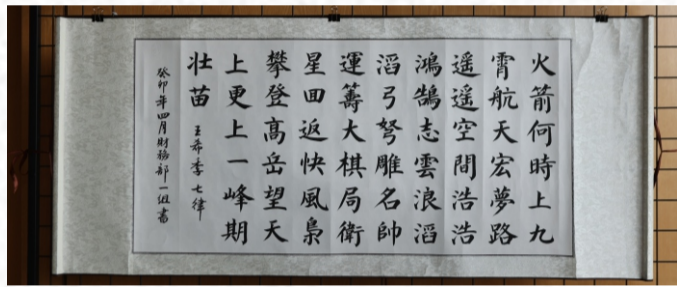 火箭何時上九
霄航天宏夢路
遥遥空間浩浩
鴻鵠志雲浪滔
滔弓弩雕名帥
運籌大棋局衛
星回返快風梟
攀登高岳望天
上更上一峰期
壮苗 王希季七律
癸卯年四月財務部一组書